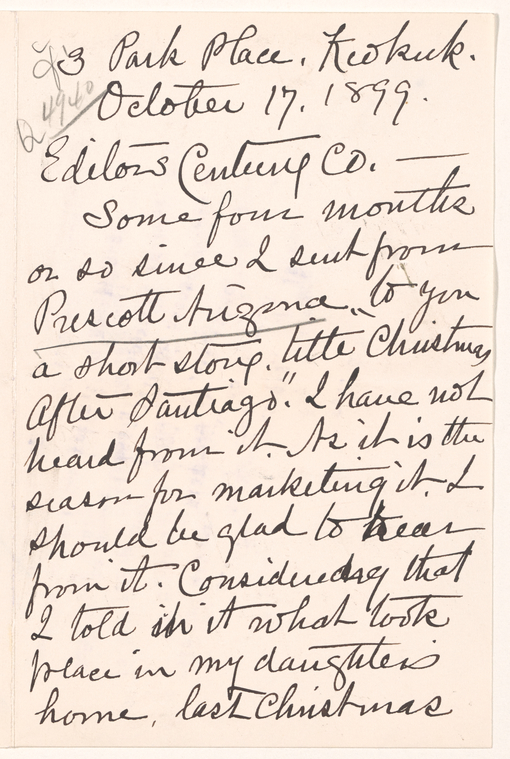 3 Park Place, Keokuk.
4940
October 17. 1899.
Editors Century Co. —
Some four months
or so since I sent from
Prescott Arizona, to you
a short story, title Christmas
After Santiago". I have not
heard from it. As it is the
season for marketing it. I
should be glad to hear
from it. Considered that
I told in it what took
place in my daughter's
home, last Christmas